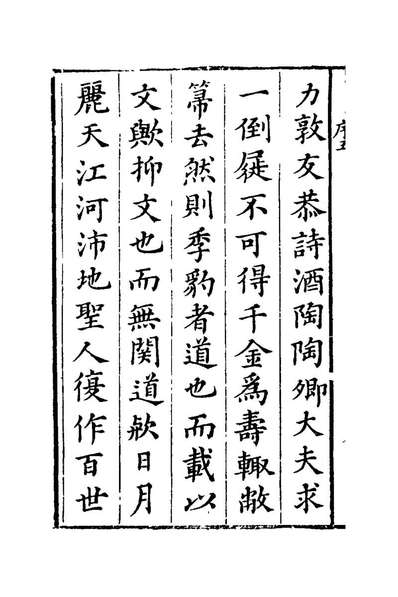 序五
力敦友恭詩酒陶陶卿大夫求
一倒屣不可得千金爲壽輙敝
箒去然則季豹者道也而載以
文歟抑文也而無関道歟日月
麗天江河沛地聖人復作百世